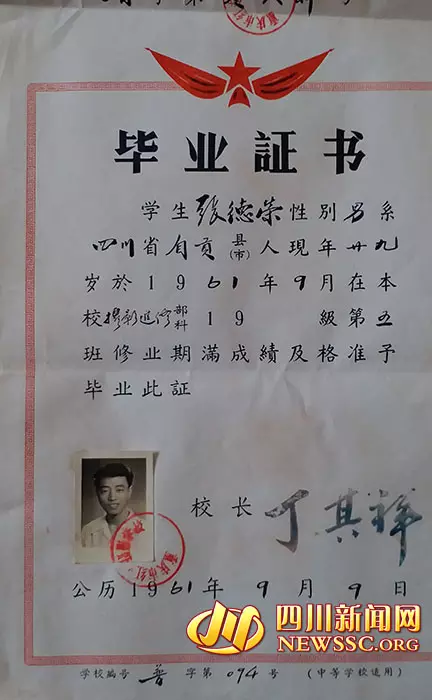 毕业証书
学生张德荣性别男系
四川省自贡县(市)人現年廿九
岁於1961年9月在本
校摄影進修部科19 級第五
班修业期滿成績及格准予
毕业此証
校长 丁其祥
公历1961年9月9日
四川新闻网
NEWSSC.ORG
学校编号 普 字第 094 号 (中等学校适用)